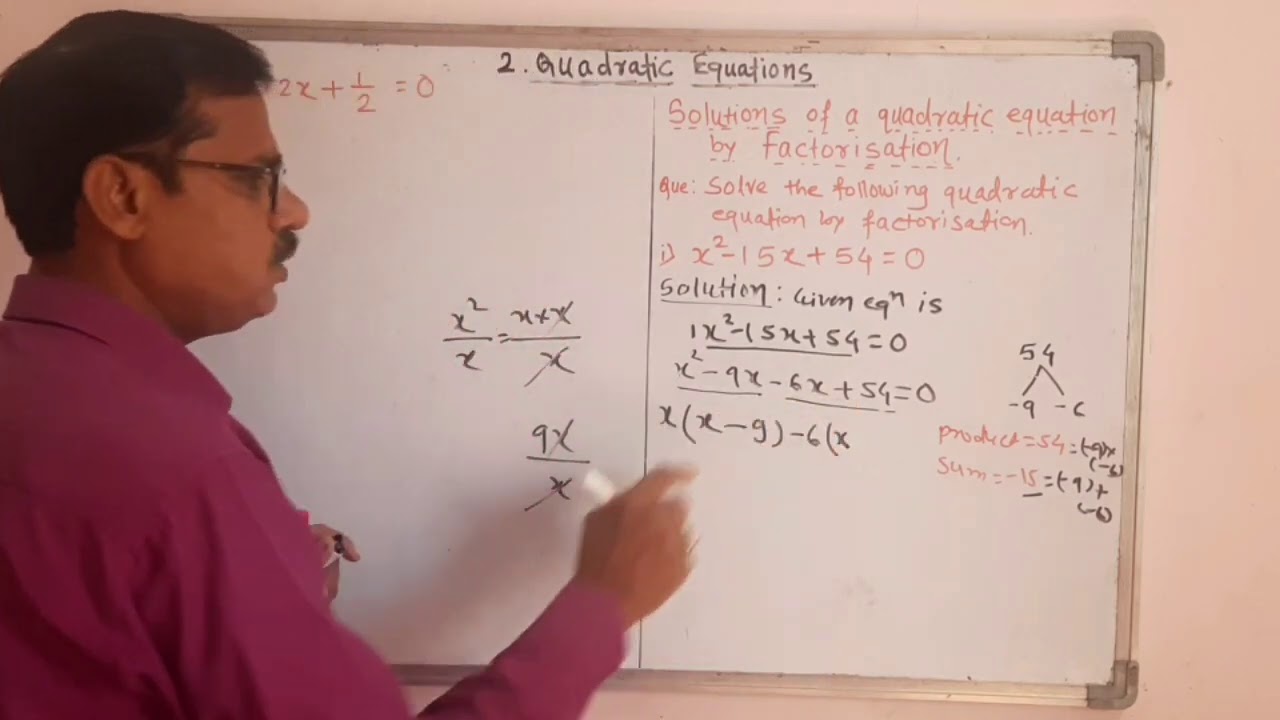 2. Quadratic Equations
2x + 1/2 = 0
x²/x = x×x/x
9x/x
Solutions of a quadratic equation
by Factorisation.
Que: Solve the following quadratic
equation by factorisation.
i) x²-15x+54=0
Solution: Given eqⁿ is
1x²-15x+54=0
x²-9x-6x+54=0
x(x-9)-6(x
54
-9 -6
product=54=(-9)×
(-6)
Sum=-15=(-9)+
(-6)